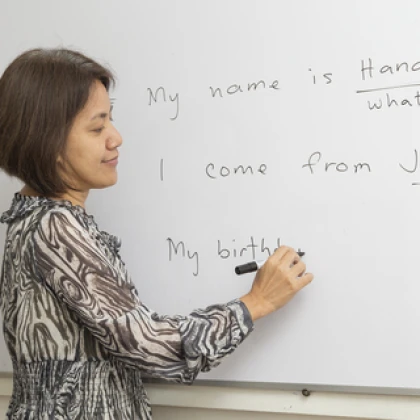 My name is Hana
what
I come from J
My birth